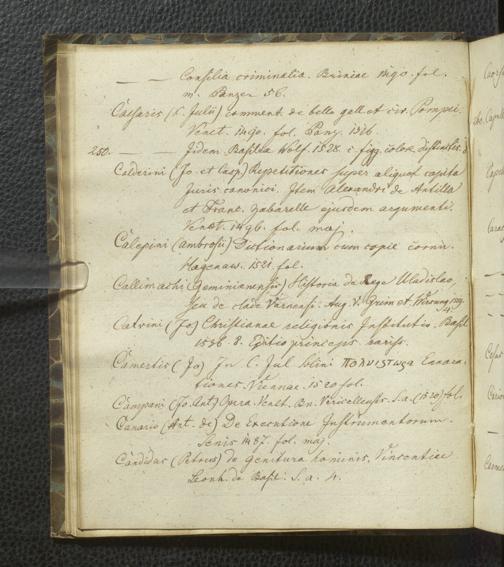 — — Consilia criminalia. Brixiae 1490. fol.
m. Panzer 56.
Caesaris (C. Julii) comment. de bello gall. et civ. Pompei.
Venet. 1490. fol. Panz. 1326.
250. — — Iidem. Basileae 1528. c. figg. color. distinctis.
Calderini (Jo. et Casp.) Repetitiones super aliquot capita
Juris canonici. Item Alexandri de Antilla
et Franc. Zabarelle ejusdem argumenti.
Venet. 1496. fol. maj.
Calepini (Ambrosii) Dictionarium cum copie cornu.
Hagenaw. 1521. fol.
Callimachi (Geminianensis) Historia de Rege Uladislao,
seu de clade Varnensi. Aug. V. Grim et Wirsung 1519.
Calvini (Jo) Christianae religionis Institutio. Basil.
1536. 8. Editio princeps. rariss.
Camertis (Jo) In C. Jul. Solini πολυιστωρα Enarra-
tiones. Viennae. 1520 fol.
Campani (Jo. Ant) Opera. Venet. Bn. Vercellensis. S. a. fol.
Canario (Ant. de) De Executione Instrumentorum.
Senis 1487. fol. maj.
Candidus (Petrus) de genitura hominis.
Leonh. de Basil. S. a. 4.